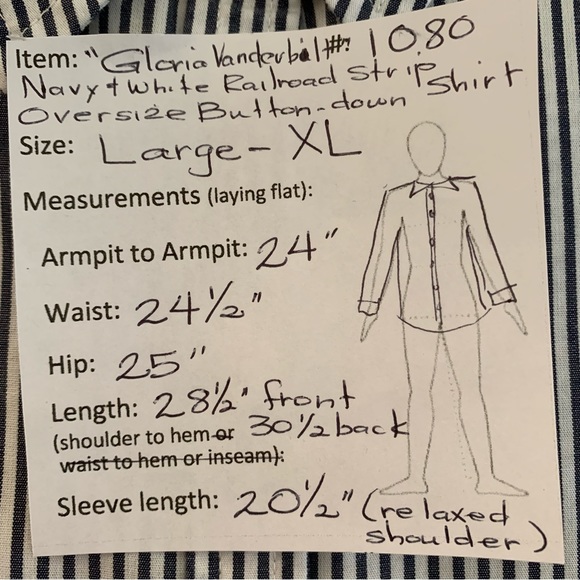 Item: "Gloria Vanderbilt #: 1080
Navy + White Railroad Strip Shirt
Oversize Button-down
Size: Large - XL
Measurements (laying flat):
Armpit to Armpit: 24"
Waist: 24½"
Hip: 25"
Length: 28½" front
(shoulder to hem or 30½ back
waist to hem or inseam):
Sleeve length: 20½" (relaxed
shoulder)